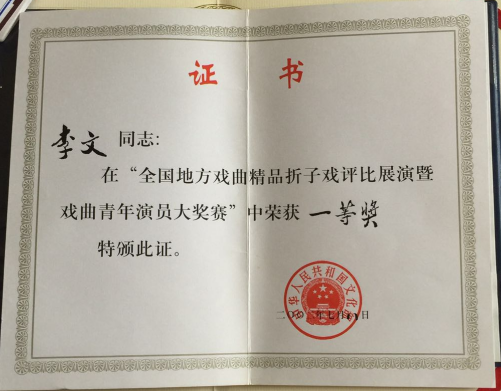 证 书
李文 同志:
在“全国地方戏曲精品折子戏评比展演暨
戏曲青年演员大奖赛”中荣获 一等奖
特颁此证。
中华人民共和国文化部
二〇〇 年七月 日